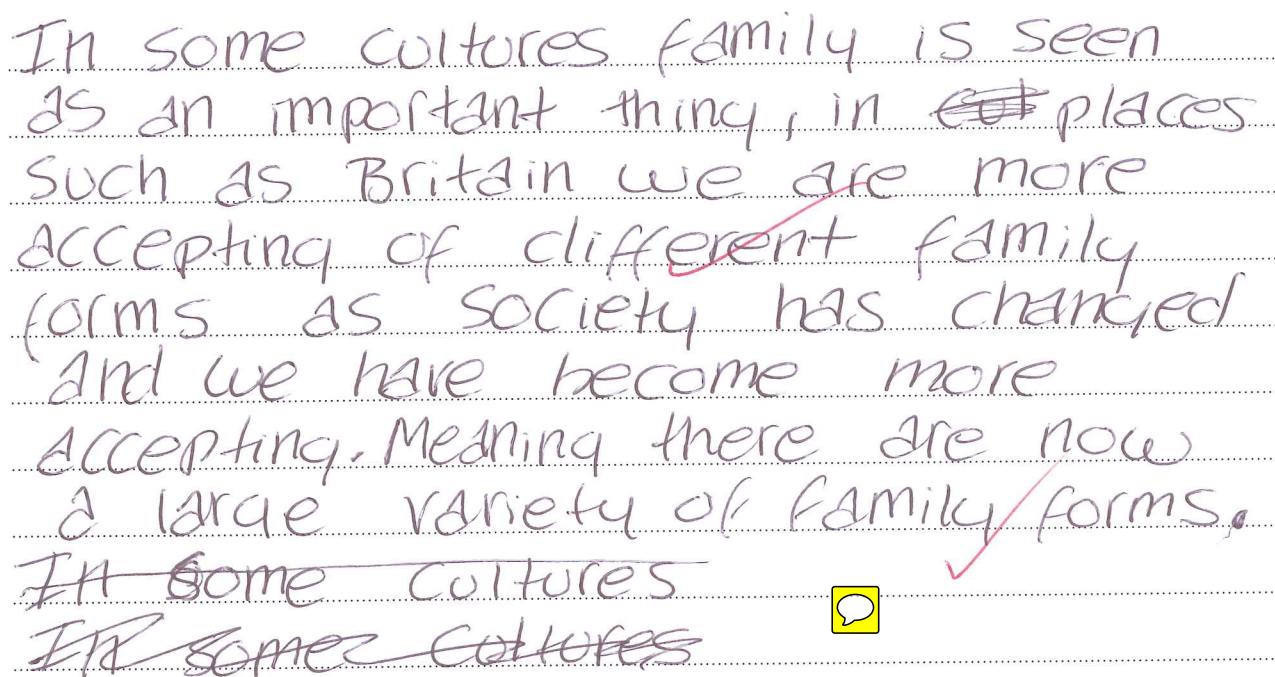 In some cultures family is seen
as an important thing, in places
such as Britain we are more
accepting of different family
forms as society has changed
and we have become more
accepting. Meaning there are now
a large variety of family forms.
In some cultures
In some cultures